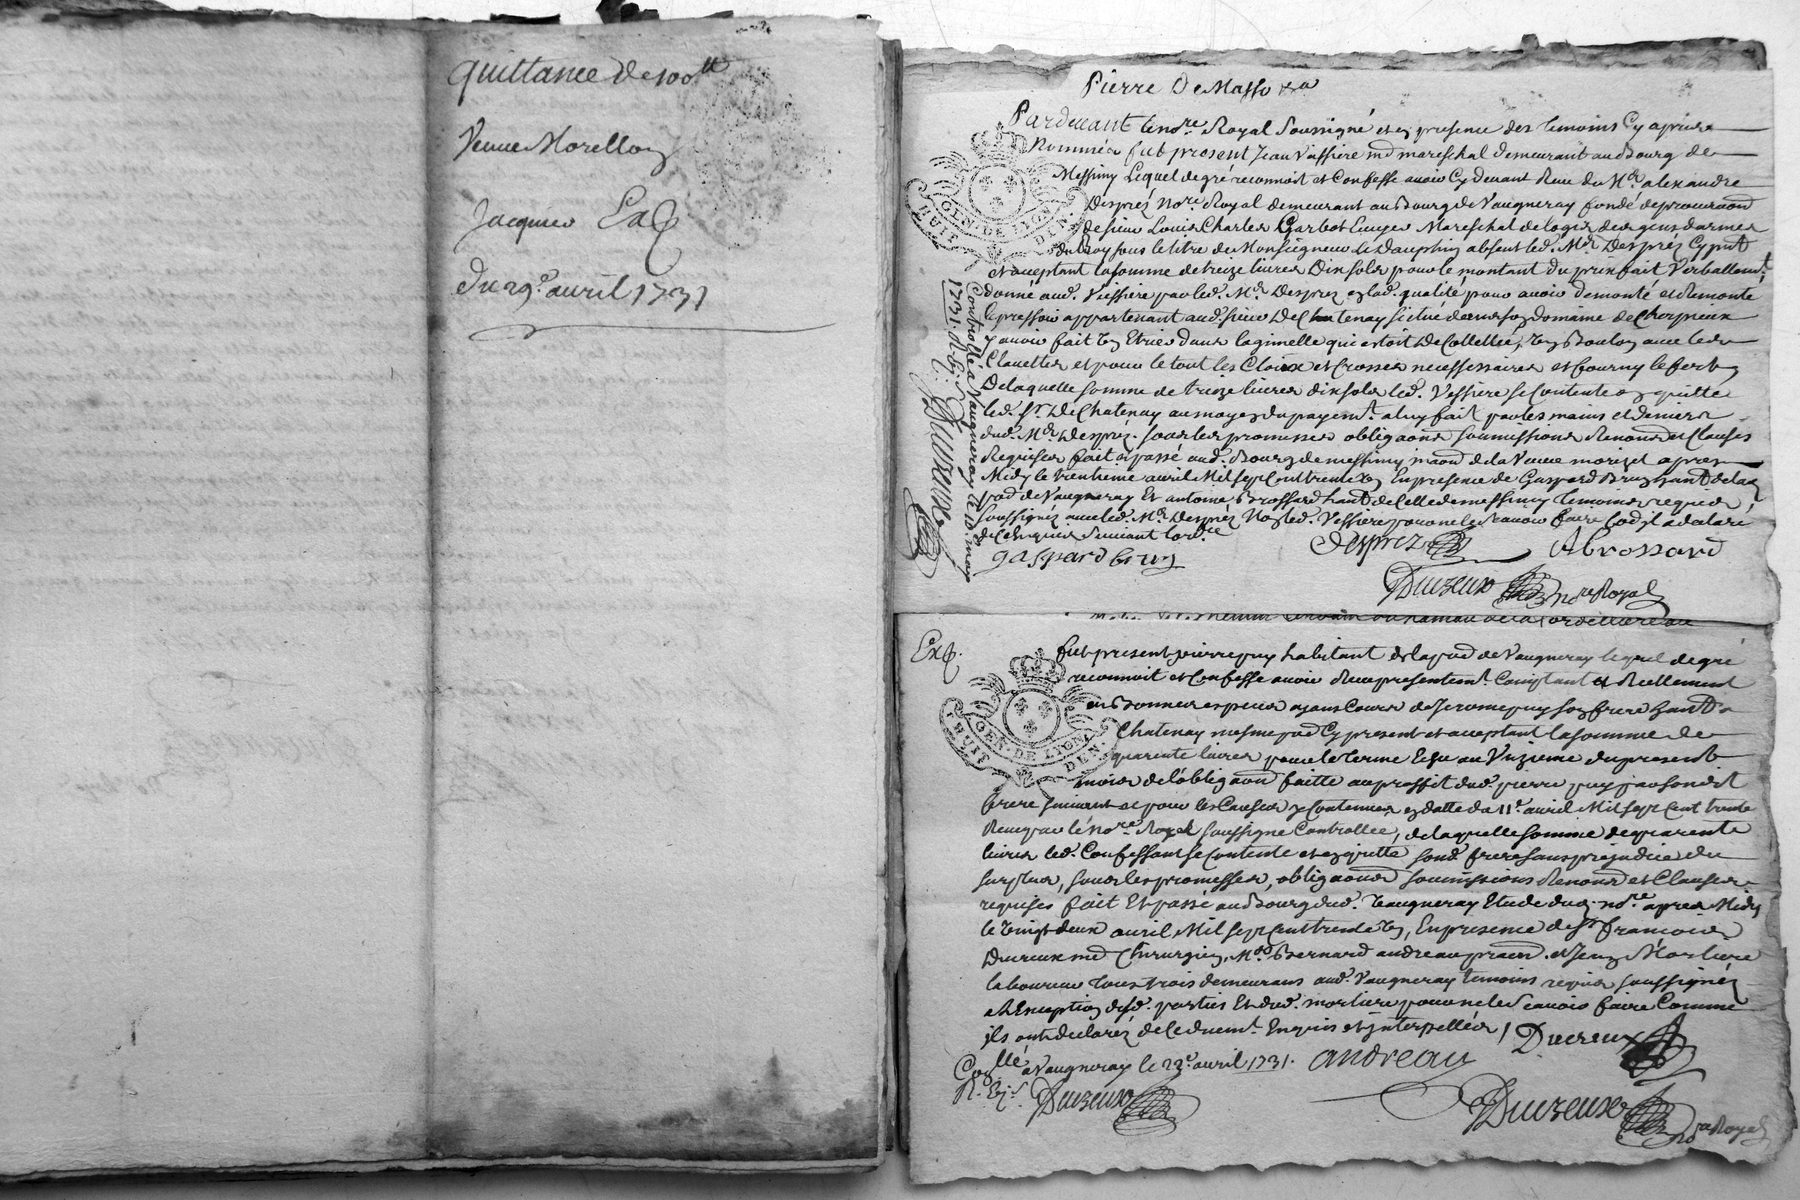 quittance de 100 ₶
Veuve Morellon
Jacques
Du 29e. avril 1731
Pierre De Masso
Pardevant le nore. Royal Soussigné et en presence des Temoins Cy apres
Nommés fut present Jean Vassiere md mareschal demeurant au Bourg de
Messimy Lequel de gré reconnoit et Confesse avoir Cy devant Receu de Mr. alexandre
Desprez Nore. Royal demeurant au Bourg de Vaugneray fondé de procuraon
de sieur Louis Charles Garbot Ecuyer Mareschal de logis des gens darmes
du Roy sous le titre de Monseigneur le Dauphin absent led. Mr. Desprez Cy pnt
et acceptant la somme de treize livres Dix sols pour le montant du prix fait Verballemt.
donné aud. Vessiere par led. Mr. Desprez en lad. qualité pour avoir demonté et Remonté
le pressoir appartenant aud. sieur De Chatenay situé dans son domaine de Chorpieux
y avoir fait un Etrier dans la gimelle qui estoit Decollettée, un Boulon avec les
Clavettes et pour le tout les Cloux et Crosses necessaires et fourny le fert
De laquelle somme de treize livres dix sols led. Vessiere se Contente en quitte
led. Sr. De Chatenay au moyen du payemt. a luy fait par les mains et deniers
dud. Mr. Desprez. sous les promesses obligaons soumissions Renonons et Clauses
Requises fait et passé aud. Bourg de messimy maison de la Veuve morizet apres
Midy le trentieme avril Mil sept Cent trente un En presence de Gaspard Bruy hant. de la
pad de Vaugneray Et antoine Brossard hant. de Celle de messimy Temoins requis
soussignez avec led. Mr. Desprez Non led. Vessiere pour ne le scavoir faire Comme il a declaré
de ce enquis suivant lord.ce
gaspard bruy
Desprez
A brossard
Ducreux nore Royal
Controllé a Vaugneray le 10e. may
1731. R. 6s.
Ducreux
GEN. DE LION
HUIT DEN.
Exp.
fut present pierre puy habitant de la pad de Vaugneray lequel de gré
reconnoit et Confesse avoir Receu presentemt. Comptant et Reellement
en Bonnes especes ayans Cours de Jerome puy son frere hant. a
Chatenay mesme pad Cy present et acceptant la somme de
quarente livres pour le terme Echu au Unzieme du present
mois de l'obligaon faitte au proffit dud. pierre puy par sondit
frere suivant et pour les Causes y Contenues en datte du 11e. avril Mil sept Cent trente
Receu par le nore. Royal soussigné Controllée, de laquelle somme de quarente
livres led. Confessant se Contente et en quitte sond. frere sans prejudice du
surplus, sous les promesses, obligaons soumissions Renonons et Clauses
requises fait Et passé au Bourg dud. Vaugneray Etude dud. nore. apres Midy
le vingt deux avril Mil sept Cent trente un, En presence de Sr. françois
Ducreux md Chirurgien, Me. Bernard andreau praen. et Jean Morliere
laboureur tous trois demeurans aud. Vaugneray temoins requis soussignez
a l'exception desd. parties Et dud. morliere pour ne le scavoir faire Comme
ils ont declarez de ce duemt. Enquis et interpellés /
Ducreux
Conllé a Vaugneray le 23e. avril 1731.
andreau
Ducreux
Ducreux
nore Royal
GEN. DE LION
HUIT DEN.